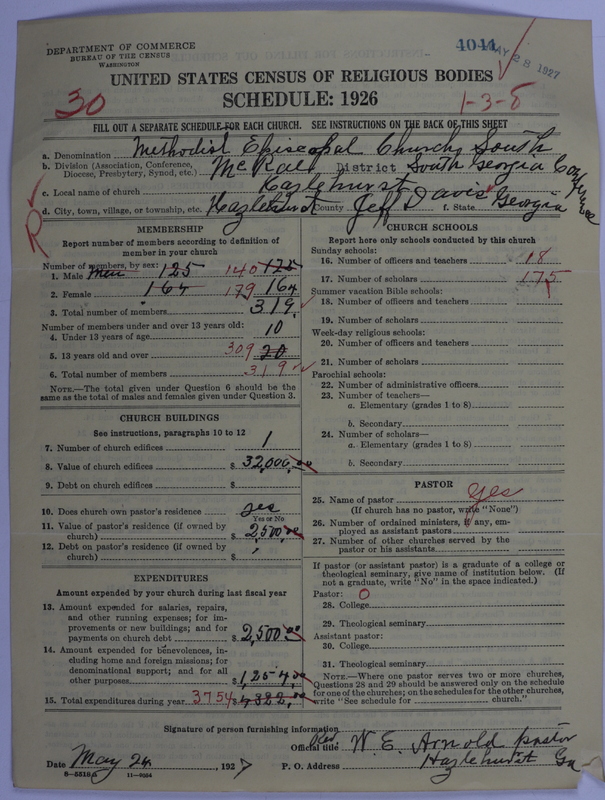 DEPARTMENT OF COMMERCE
BUREAU OF THE CENSUS
WASHINGTON
4044 MAY 28 1927
UNITED STATES CENSUS OF RELIGIOUS BODIES
30 SCHEDULE: 1926 1-3-8
FILL OUT A SEPARATE SCHEDULE FOR EACH CHURCH. SEE INSTRUCTIONS ON THE BACK OF THIS SHEET
a. Denomination Methodist Episcopal Church, South
b. Division (Association, Conference, Diocese, Presbytery, Synod, etc.) McRae District South Georgia Conference
c. Local name of church Hazlehurst
d. City, town, village, or township, etc. Hazlehurst County Jeff Davis f. State Georgia
R
MEMBERSHIP
Report number of members according to definition of
member in your church
Number of members, by sex:
1. Male men 125 140 125
2. Female 164 179 164
3. Total number of members 319
Number of members under and over 13 years old:
4. Under 13 years of age 10
5. 13 years old and over 309 20
6. Total number of members 319
NOTE.—The total given under Question 6 should be
same as the total of males and females given under Question 3.
CHURCH BUILDINGS
See instructions, paragraphs 10 to 12
7. Number of church edifices 1
8. Value of church edifices $ 32,000.00
9. Debt on church edifices $
10. Does church own pastor's residence yes
Yes or No
11. Value of pastor's residence (if owned by
church) $ 2,500.00
12. Debt on pastor's residence (if owned by
church) $
EXPENDITURES
Amount expended by your church during last fiscal year
13. Amount expended for salaries, repairs,
and other running expenses; for im-
provements or new buildings; and for
payments on church debt $ 2,500.00
14. Amount expended for benevolences, in-
cluding home and foreign missions; for
denominational support; and for all
other purposes $ 1,254.00
15. Total expenditures during year 3754 $
CHURCH SCHOOLS
Report here only schools conducted by this church
Sunday schools:
16. Number of officers and teachers 18
17. Number of scholars 175
Summer vacation Bible schools:
18. Number of officers and teachers
19. Number of scholars
Week-day religious schools:
20. Number of officers and teachers
21. Number of scholars
Parochial schools:
22. Number of administrative officers
23. Number of teachers—
a. Elementary (grades 1 to 8)
b. Secondary
24. Number of scholars—
a. Elementary (grades 1 to 8)
b. Secondary
PASTOR
25. Name of pastor yes
(If church has no pastor, write "None")
26. Number of ordained ministers, if any, em-
ployed as assistant pastors
27. Number of other churches served by the
pastor or his assistants
If pastor (or assistant pastor) is a graduate of a college or
theological seminary, give name of institution below. (If
not a graduate, write "No" in the space indicated.)
Pastor: 0
28. College
29. Theological seminary
Assistant pastor:
30. College
31. Theological seminary
NOTE.—Where one pastor serves two or more churches,
Questions 28 and 29 should be answered only on the schedule
for one of the churches; on the schedules for the other churches,
write "See schedule for church."
Signature of person furnishing information
Official title Rev. W. E. Arnold pastor
Date May 24, 1927 P. O. Address Hazlehurst Ga
8-5518a 11-9054